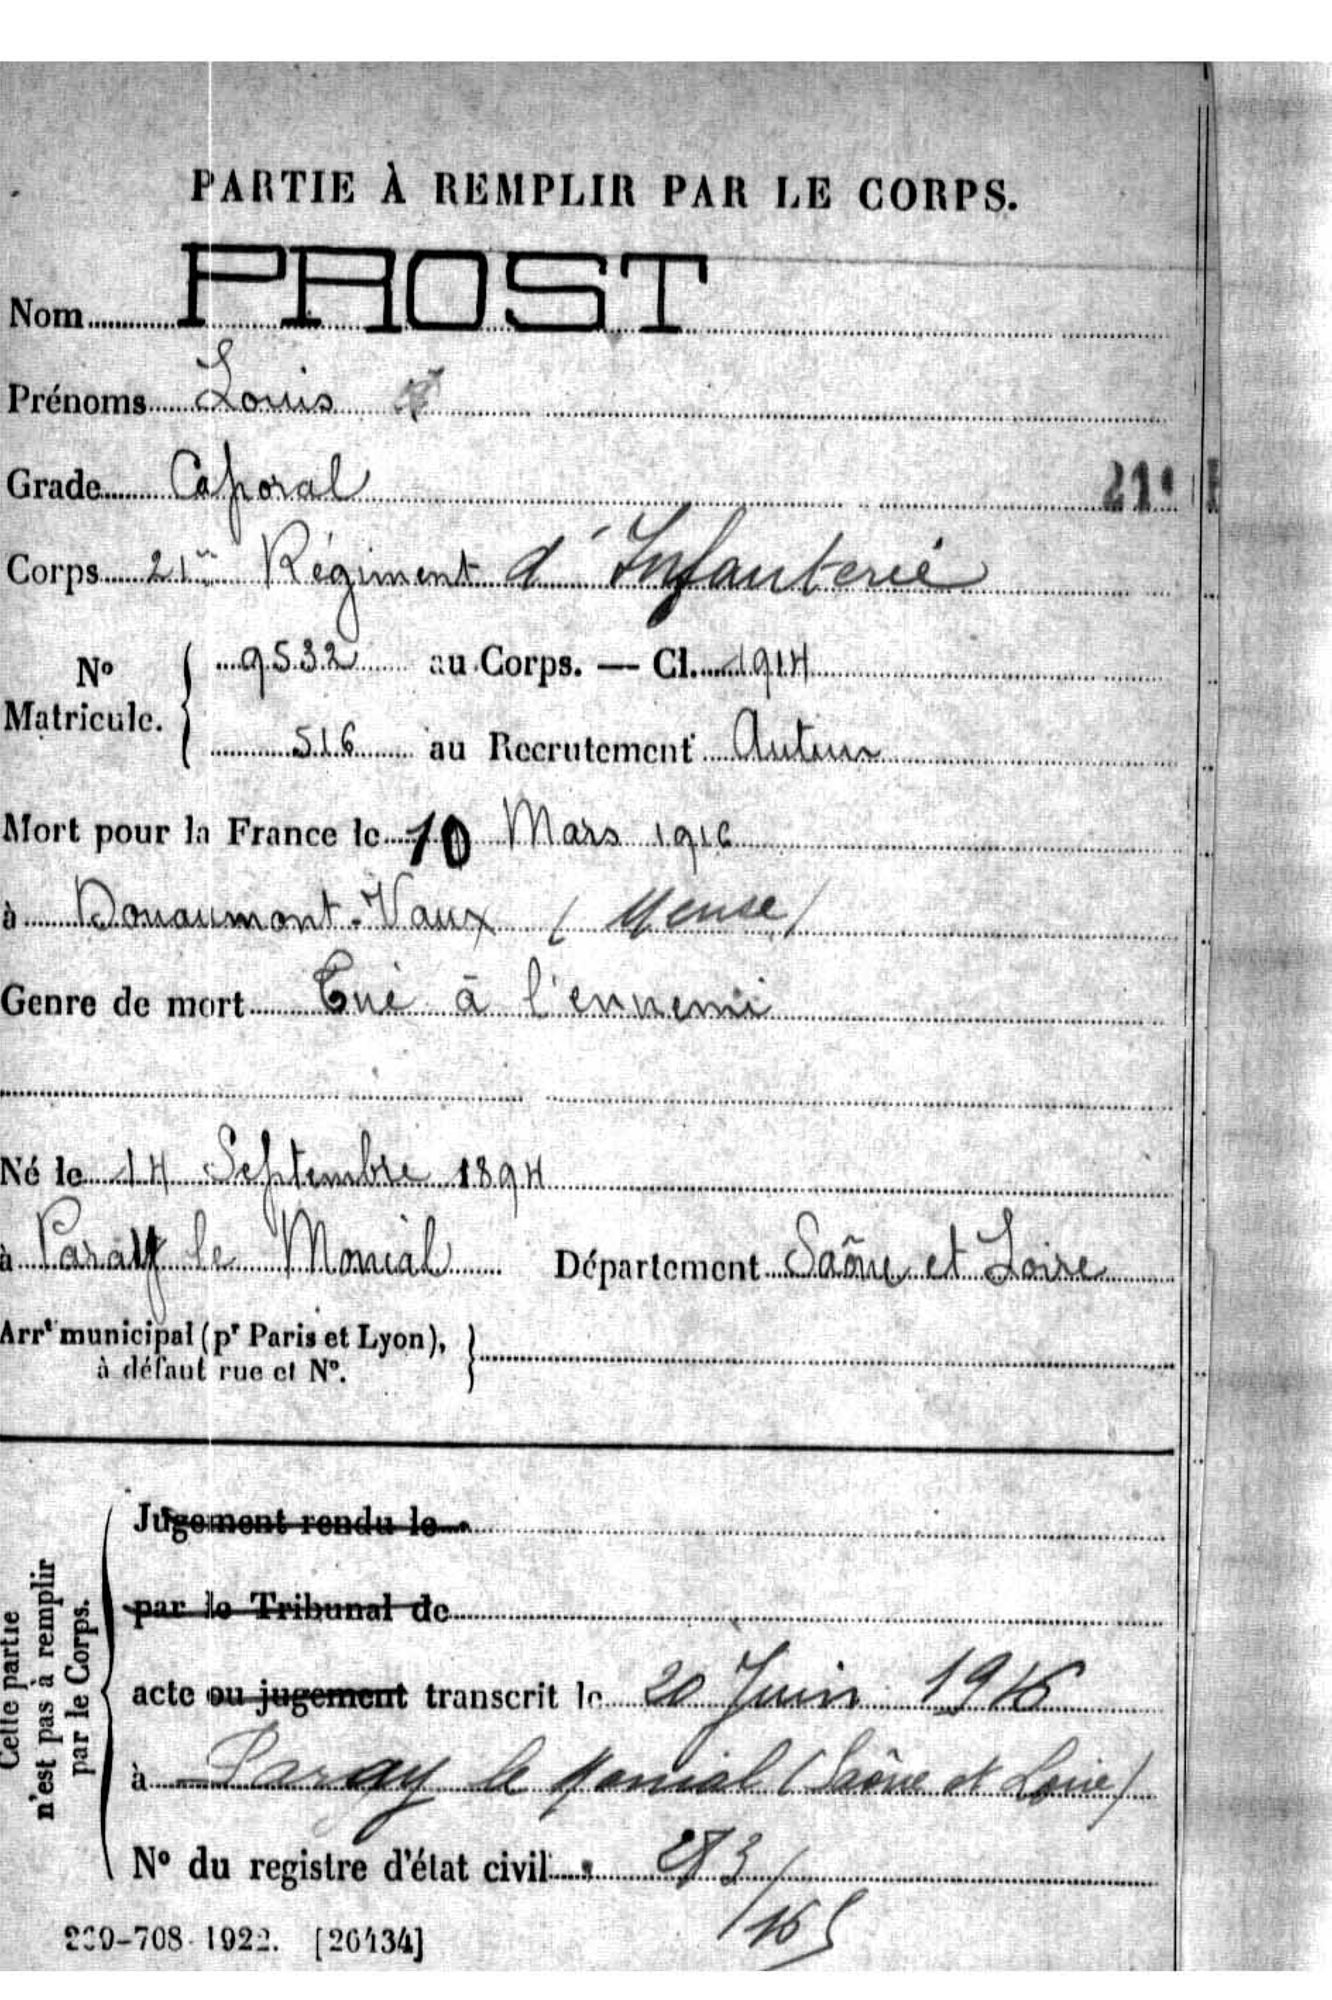 PARTIE À REMPLIR PAR LE CORPS.
Nom PROST
Prénoms Louis
Grade Caporal
21e
Corps 21me Régiment d'Infanterie
No Matricule. { 9532 au Corps. — Cl. 1914
516 au Recrutement Autun
Mort pour la France le 10 Mars 1916
à Douaumont-Vaux (Meuse)
Genre de mort Tué à l'ennemi
Né le 14 Septembre 1894
à Paray le Monial Département Saône et Loire
Arrt municipal (pr Paris et Lyon), }
à défaut rue et No.
Cette partie
n'est pas à remplir
par le Corps.
Jugement rendu le
par le Tribunal de
acte ou jugement transcrit le 20 Juin 1916
à Paray le Monial (Saône et Loire)
No du registre d'état civil
165
708-1922. [26434]